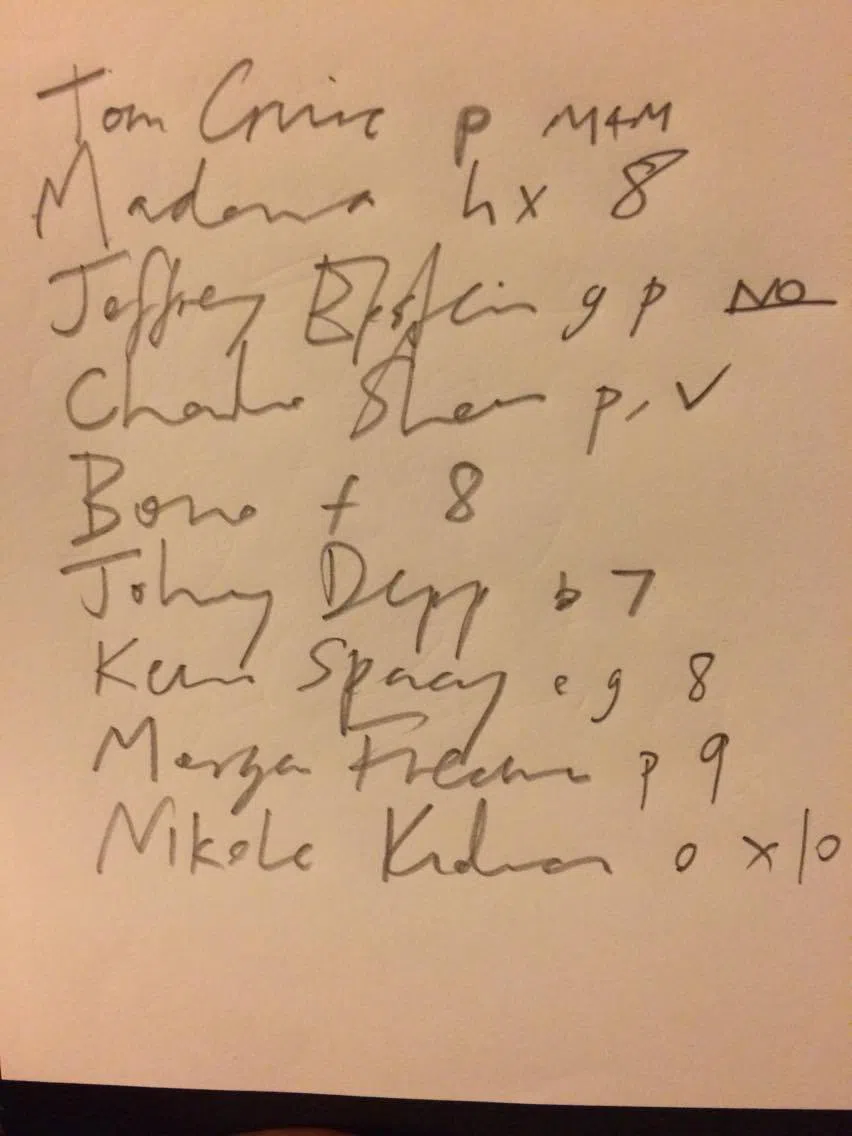 Tom Cruise p M+M
Madonna h x 8
Jeffrey Epstein g p NO
Charlie Sheen p, ✓
Bono + 8
Johny Depp b 7
Kevin Spacey e g 8
Morgan Freeman p 9
Nikole Kidman o x 10